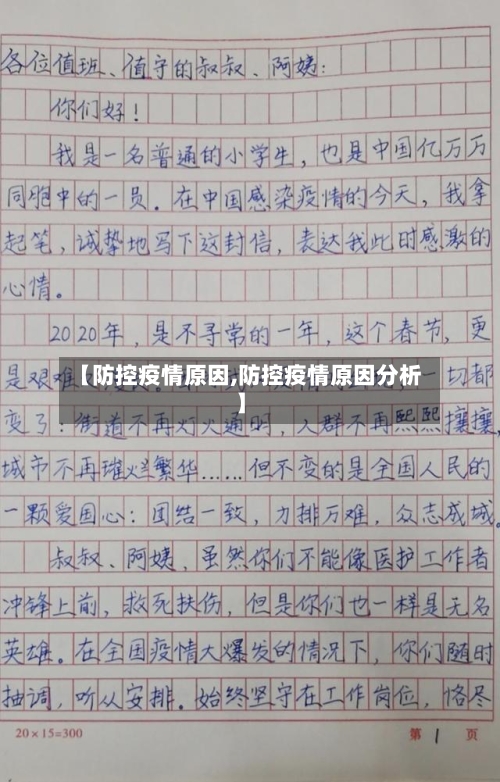 各位值班、值守的叔叔、阿姨：
你们好！
我是一名普通的小学生，也是中国亿万万
同胞中的一员。在中国感染疫情的今天，我拿
起笔，诚挚地写下这封信，表达我此时感激的
心情。
2020年，是不寻常的一年，这个春节，更
是艰难
【防控疫情原因,防控疫情原因分析
】
一切都
变了：街道不再灯火通明，人群不再熙熙攘攘，
城市不再璀烂繁华……但不变的是全国人民的
一颗爱国心：团结一致，力排万难，众志成城。
叔叔、阿姨，虽然你们不能像医护工作者
冲锋上前，救死扶伤，但是你们也一样是无名
英雄。在全国疫情大爆发的情况下，你们随时
抽调，听从安排。始终坚守在工作岗位，恪尽
20×15=300
第 1 页